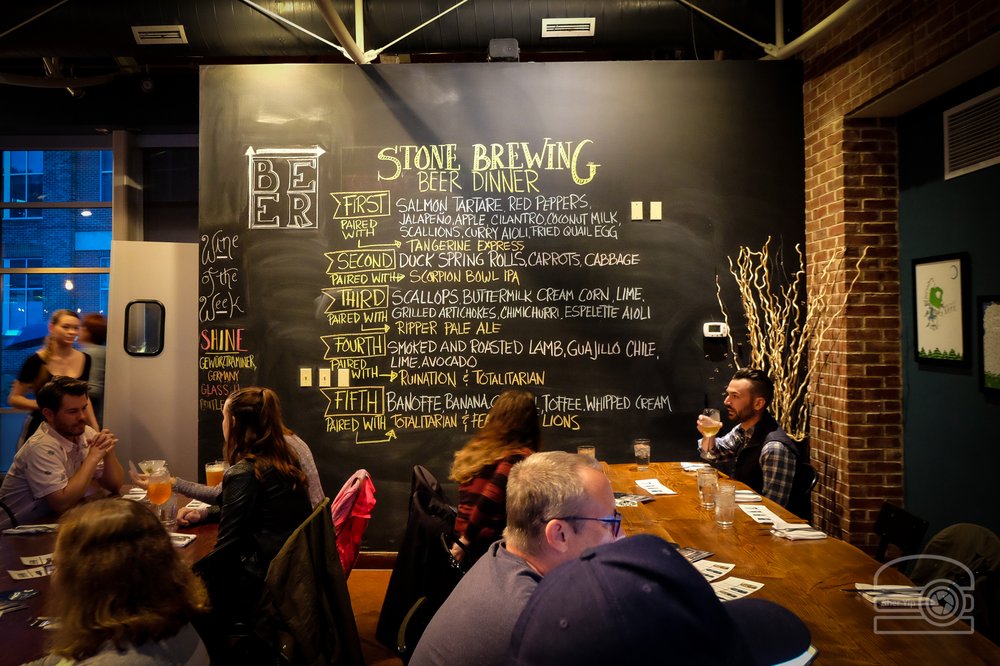 BE
ER
STONE BREWING
BEER DINNER
FIRST SALMON TARTARE, RED PEPPERS,
JALAPEÑO, APPLE, CILANTRO, COCONUT MILK,
PAIRED WITH SCALLIONS, CURRY AIOLI, FRIED QUAIL EGG
TANGERINE EXPRESS
SECOND DUCK SPRING ROLLS, CARROTS, CABBAGE
PAIRED WITH SCORPION BOWL IPA
THIRD SCALLOPS, BUTTERMILK CREAM CORN, LIME,
PAIRED WITH GRILLED ARTICHOKES, CHIMICHURRI, ESPELETTE AIOLI
RIPPER PALE ALE
FOURTH SMOKED AND ROASTED LAMB, GUAJILLO CHILE,
LIME, AVOCADO
PAIRED WITH RUINATION & TOTALITARIAN
FIFTH BANOFFE, BANANA, TOFFEE, WHIPPED CREAM
PAIRED WITH TOTALITARIAN & LIONS
Wine
of the
Week
SHINE
GEWÜRZTRAMINER,
GERMANY
GLASS